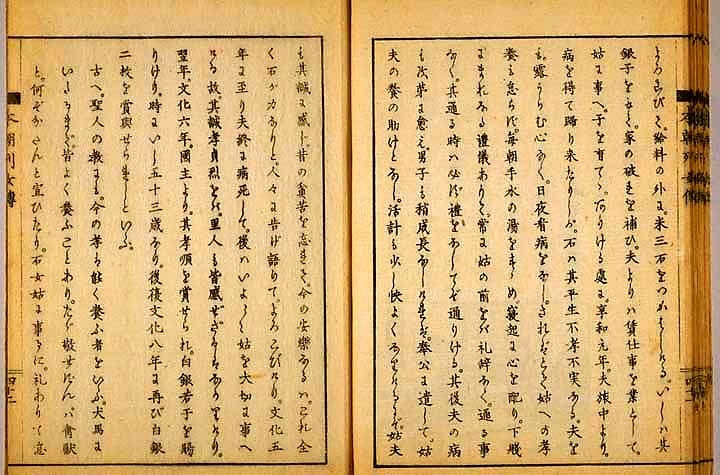 よろこびて。給料の外に。米三石をつかはしける。いしハ其
銀子を以て。家の破を補ひ。夫よりハ賃仕事を業として。
姑に事へ。子を育てゝ。ありける處に。享和元年。夫旅中より。
病を得て踊り来たりしが。石ハ其平生不孝不実なる。夫を
も。露うらむ心なく。日夜看病をなし。されども姑への孝
養も怠らず。毎朝手水の湯をすゝめ。寝起に心を配り。下賤
にまれなる禮儀ありて。常に姑の前をバ礼辞なく。通る事
なく。其通る時ハ必ず禮をなしてぞ通りける。其後夫の病
も次第に愈え。男子も稍成長なしけれバ。奉公に遣して。
夫の養の助けとなし。活計も少し快よくなりけるにぞ。姑夫
も其誠に感じ。昔の貧苦を忘れて。今の安樂なるハ。これ全
く石が力なりと。人々に告げ語りて。よろこびけり。文化五
年に至り夫終に病死して。後ハいよ〳〵姑を大切に事へ
ける故其誠孝貞烈をバ。里人も皆感せざるハなかりけり。
翌年。文化六年。國主より。其孝順を賞せられ。白銀若干を賜
りけり。時にいし五十三歳なり。後復文化八年に再び白銀
二枚を賞與せられしといふ。
古へ。聖人の教にも。今の孝ハ能く養ふ者をいふ。犬馬に
いたるまで。皆よく養ふことあり。たゞ敬せずんバ禽獣
と。何ぞわかたんと宣ひたり。石女姑に事ふるに。礼ありて怠
本朝列女傳
四十二